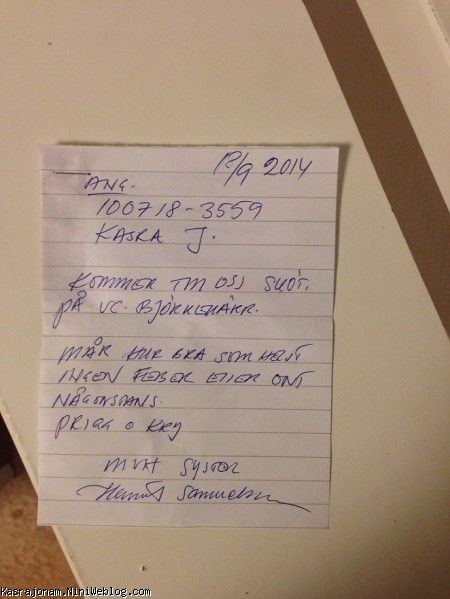 12/9 2014
ANG.
100718-3559
KASRA J.
KOMMER TILL OSS SKÖT.
PÅ VC. BJÖRKEKÄRR.
MÅR HUR BRA SOM HELST
INGEN FEBER ELLER ONT
NÅGONSTANS.
PIGG O KRY
MVH
Samuelsson
Kasrajonam.NiniWeblog.com